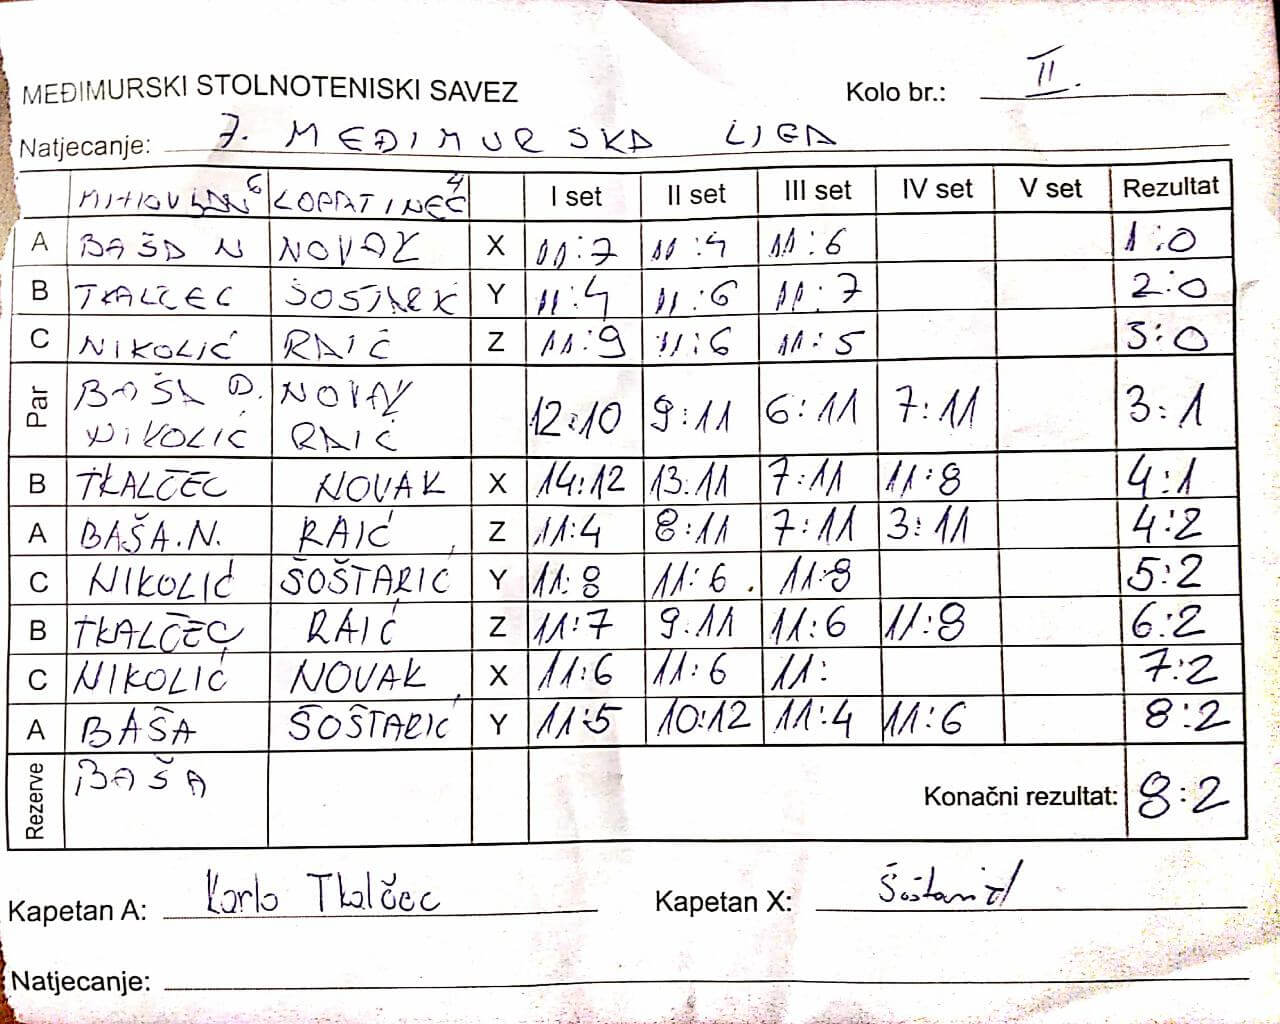 MEĐIMURSKI STOLNOTENISKI SAVEZ Kolo br.: II.
Natjecanje: 7. MEĐIMURSKA LIGA
MIHOVLJAN 6 LOPATINEC 4 I set II set III set IV set V set Rezultat
A BAŠA N NOVAK X 11:7 11:4 11:6 1:0
B TKALČEC ŠOŠTAREK Y 11:4 11:6 11:7 2:0
C NIKOLIĆ RAIĆ Z 11:9 11:6 11:5 3:0
Par BAŠA D. NOVAK 12:10 9:11 6:11 7:11 3:1
NIKOLIĆ RAIĆ
B TKALČEC NOVAK X 14:12 13:11 7:11 11:8 4:1
A BAŠA.N. RAIĆ Z 11:4 8:11 7:11 3:11 4:2
C NIKOLIĆ ŠOŠTARIĆ Y 11:8 11:6 11:9 5:2
B TKALČEC RAIĆ Z 11:7 9:11 11:6 11:8 6:2
C NIKOLIĆ NOVAK X 11:6 11:6 11: 7:2
A BAŠA ŠOŠTARIĆ Y 11:5 10:12 11:4 11:6 8:2
Rezerve BAŠA Konačni rezultat: 8:2
Kapetan A: Karlo Tkalčec Kapetan X: Šoštarić
Natjecanje: